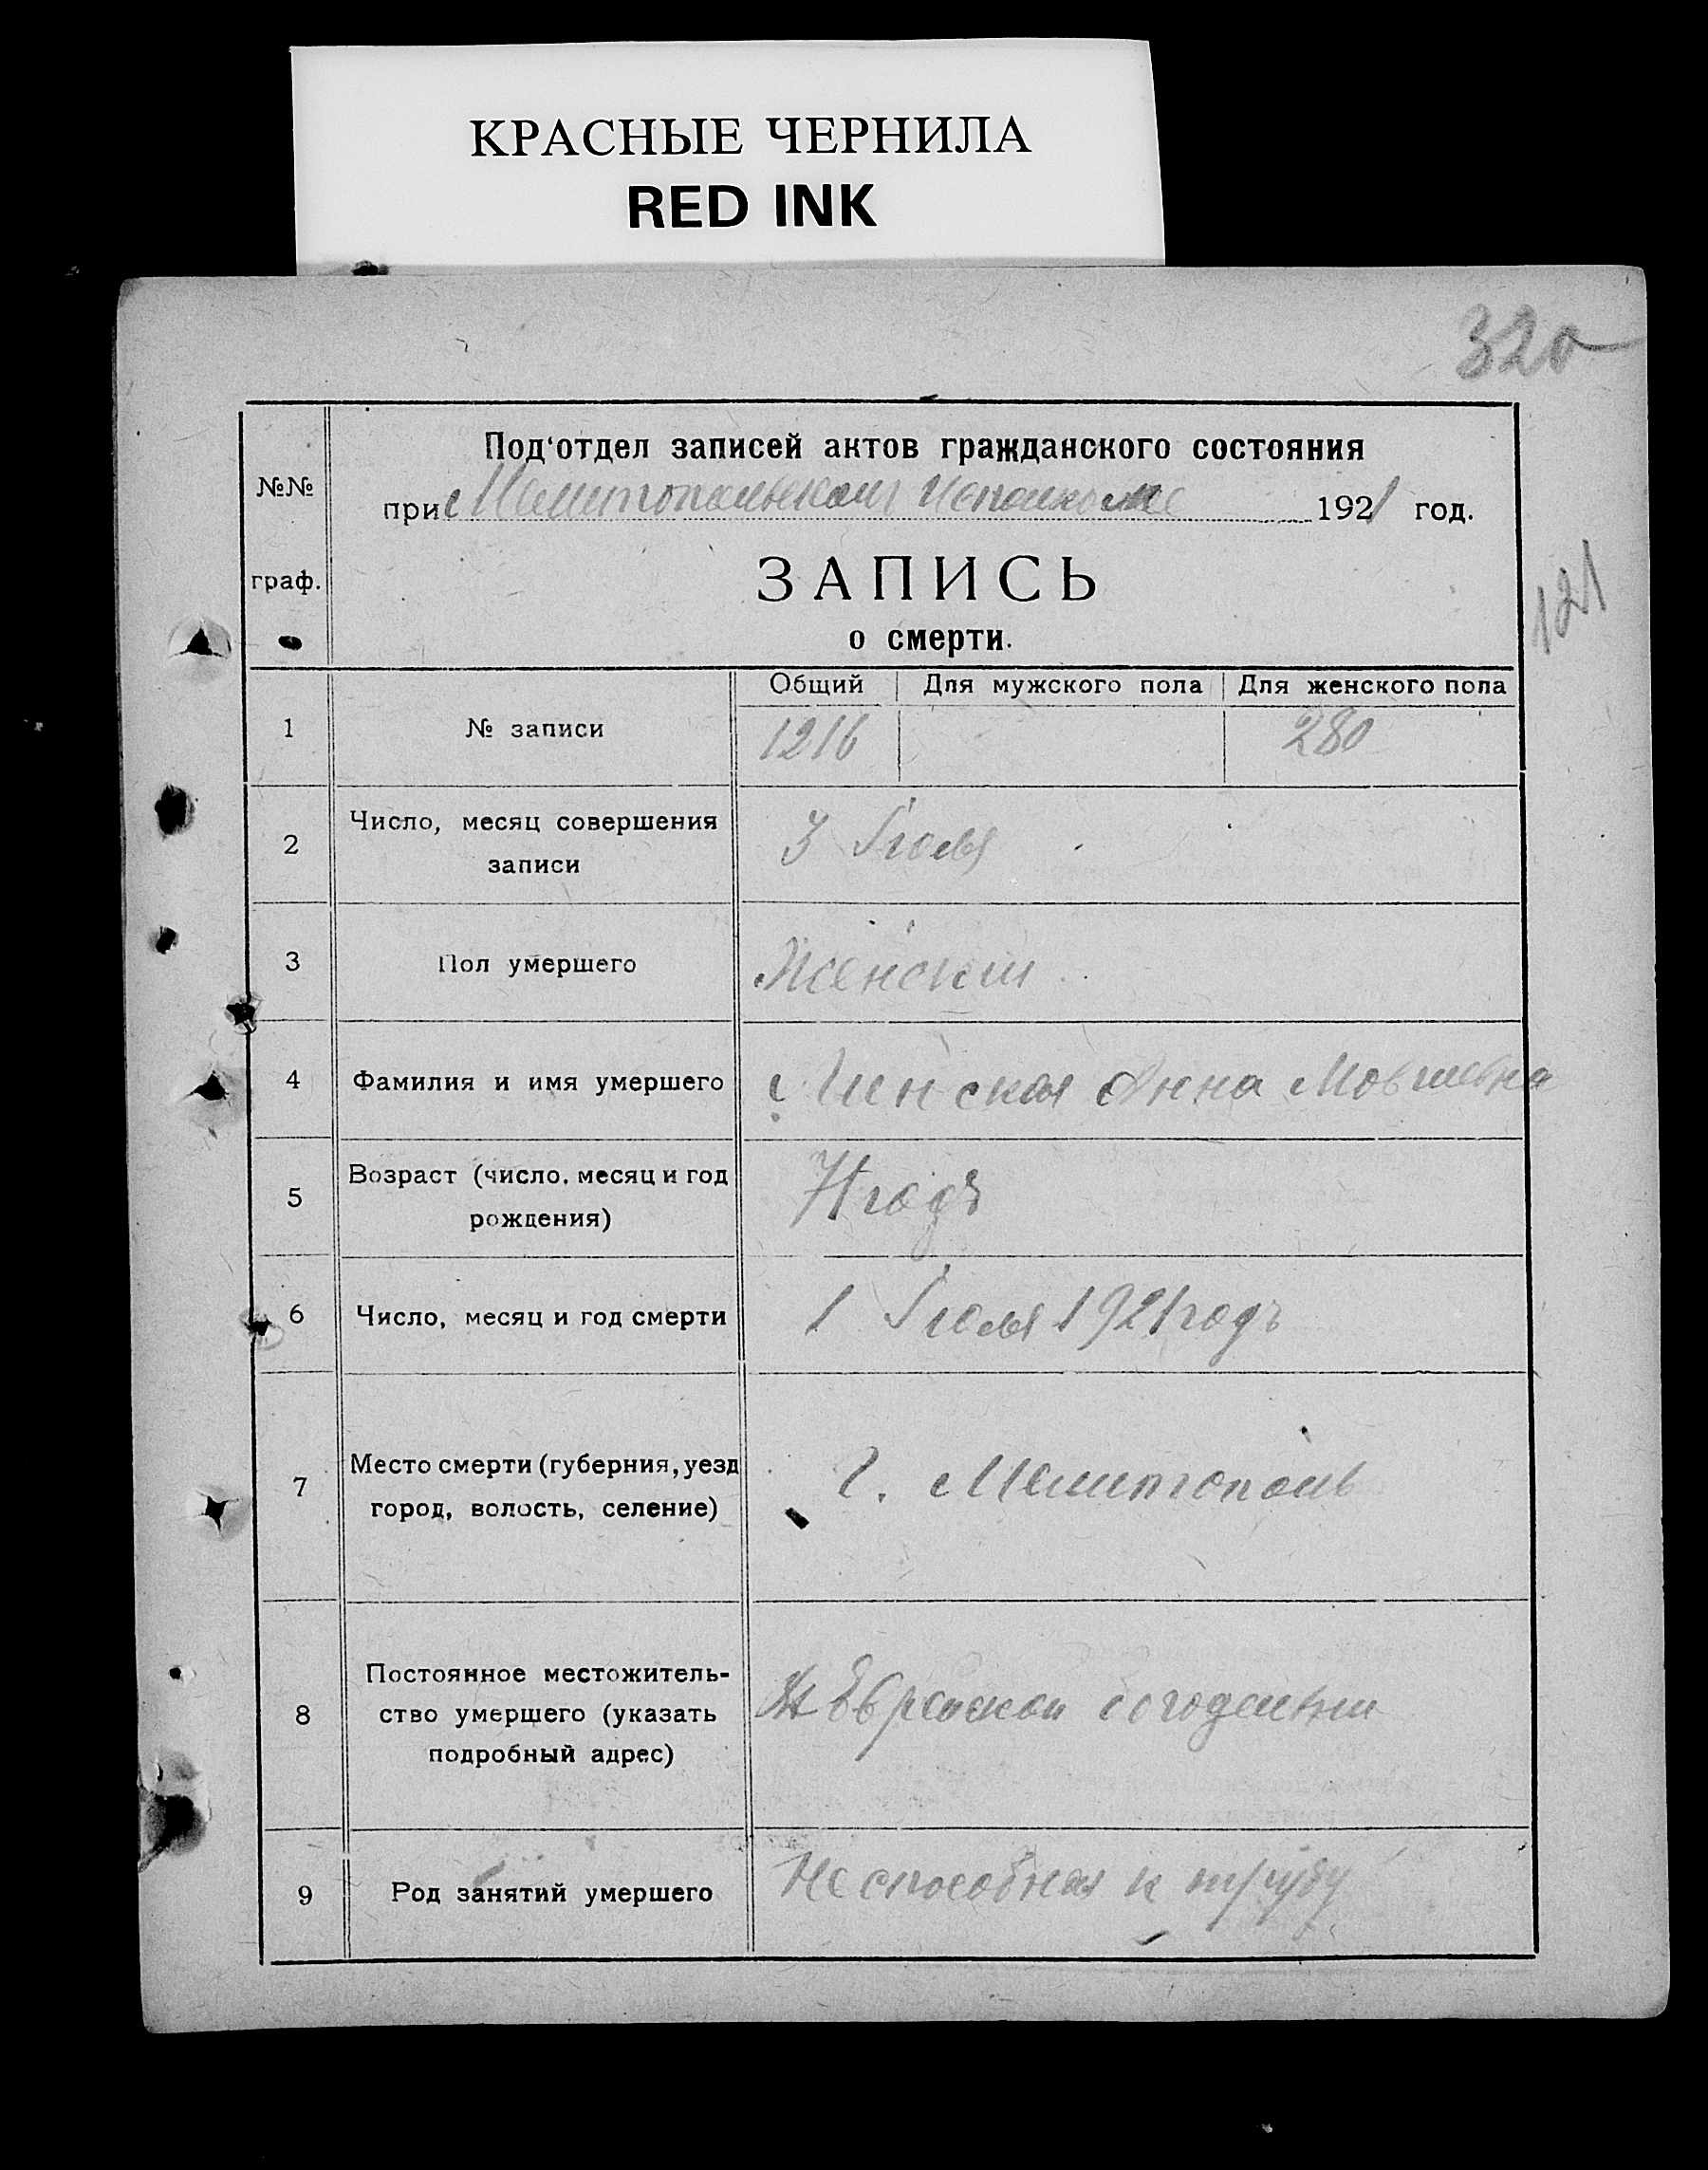 КРАСНЫЕ ЧЕРНИЛА
RED INK
320
Под'отдел записей актов гражданского состояния
№№
при Мелитопольском Исполкоме 1921 год.
граф.
ЗАПИСЬ
о смерти.
121
Общий Для мужского пола Для женского пола
1 № записи 1216 280
2 Число, месяц совершения
записи
3 Июля
3 Пол умершего Женский
4 Фамилия и имя умершего Минская Анна Мовшевна
5 Возраст (число, месяц и год
рождения)
71 годъ
6 Число, месяц и год смерти 1 Июля 1921 годъ
7 Место смерти (губерния, уезд
город, волость, селение)
Г. Мелитополь
8 Постоянное местожитель-
ство умершего (указать
подробный адрес)
Еврейской богодельни
9 Род занятий умершего Неспособная к труду